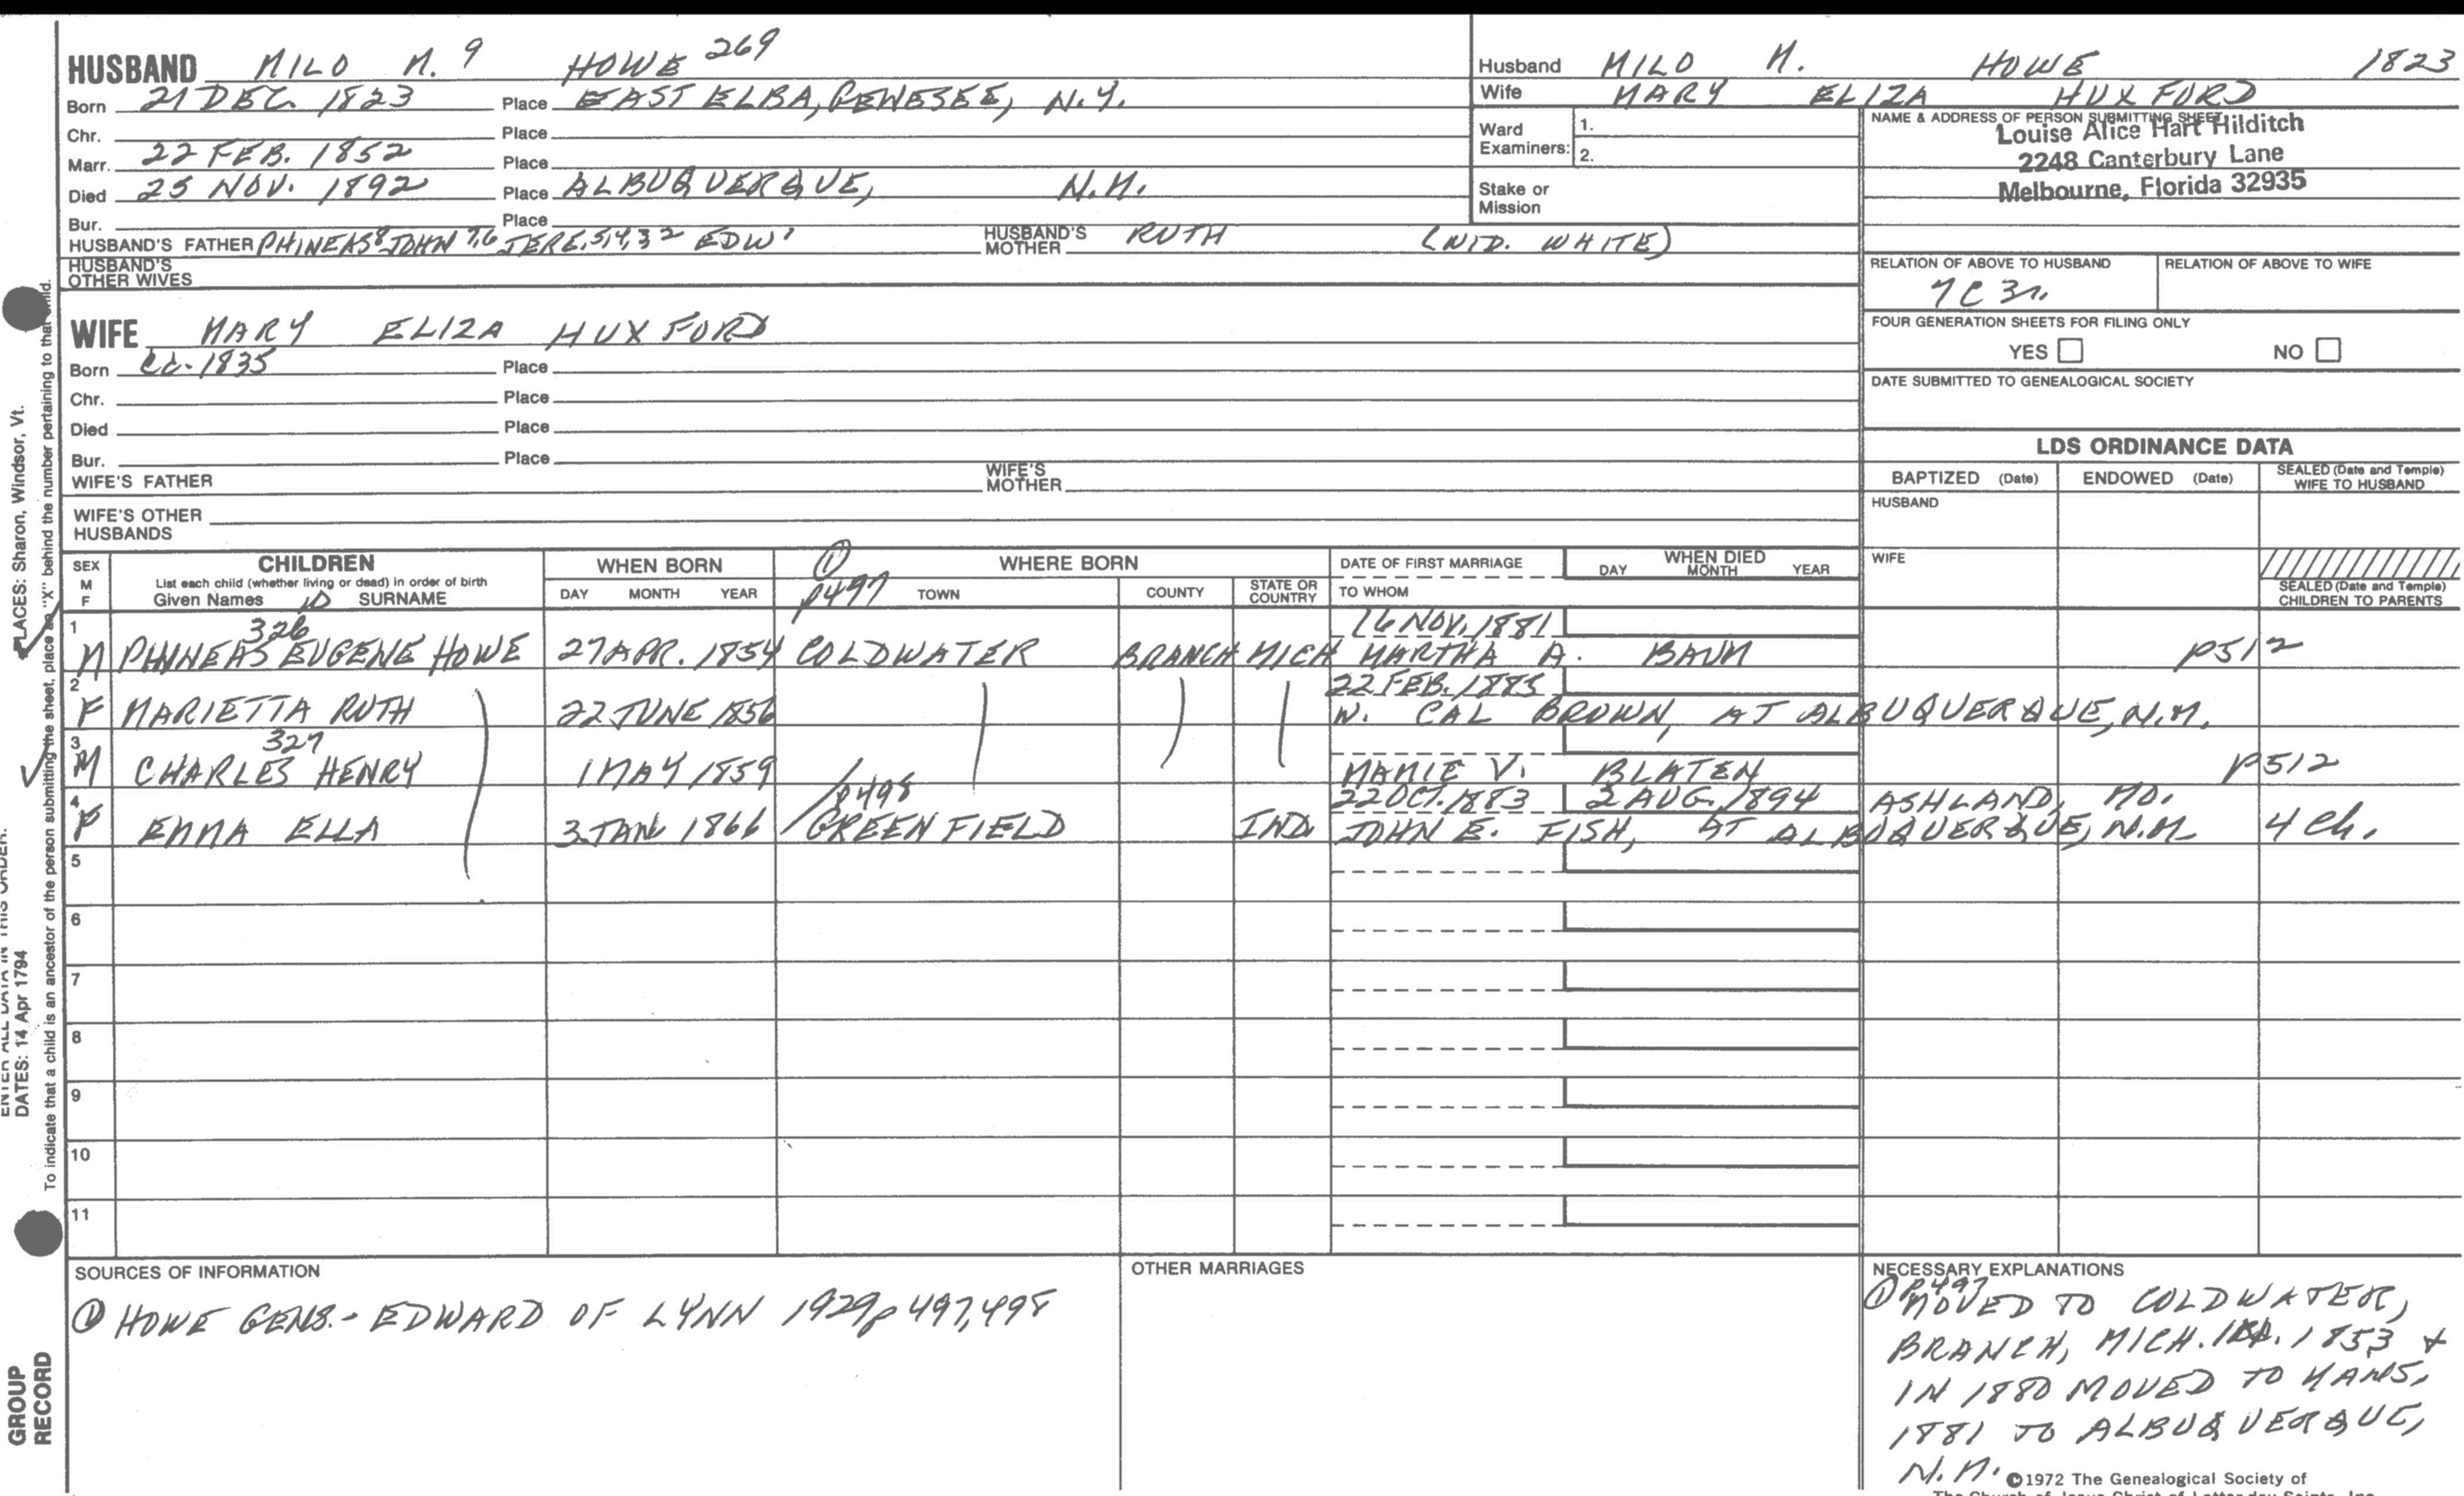 HUSBAND MILO M. 9 HOWE 269
Born 21 DEC. 1823 Place EAST ELBA, GENESEE, N.Y.
Chr. Place
Marr. 22 FEB. 1852 Place
Died 25 NOV. 1892 Place ALBUQUERQUE, N.M.
Bur. Place
HUSBAND'S FATHER PHINEAS 8 JOHN 7,6 JERE. 5,4,3,2 EDW 1 HUSBAND'S MOTHER RUTH (WID. WHITE)
HUSBAND'S OTHER WIVES
WIFE MARY ELIZA HUXFORD
Born Ca. 1835 Place
Chr. Place
Died Place
Bur. Place
WIFE'S FATHER WIFE'S MOTHER
WIFE'S OTHER HUSBANDS
Husband MILO M. HOWE 1823
Wife MARY ELIZA HUXFORD
Ward Examiners: 1.
2.
Stake or Mission
NAME & ADDRESS OF PERSON SUBMITTING SHEET
Louise Alice Hart Hilditch
2248 Canterbury Lane
Melbourne, Florida 32935
RELATION OF ABOVE TO HUSBAND RELATION OF ABOVE TO WIFE
7C3r.
FOUR GENERATION SHEETS FOR FILING ONLY
YES NO
DATE SUBMITTED TO GENEALOGICAL SOCIETY
LDS ORDINANCE DATA
BAPTIZED (Date) ENDOWED (Date) SEALED (Date and Temple) WIFE TO HUSBAND
HUSBAND
WIFE
SEALED (Date and Temple) CHILDREN TO PARENTS
SEX M F
CHILDREN
List each child (whether living or dead) in order of birth
Given Names SURNAME
WHEN BORN
DAY MONTH YEAR
① p497
WHERE BORN
TOWN COUNTY STATE OR COUNTRY
DATE OF FIRST MARRIAGE
TO WHOM
WHEN DIED
DAY MONTH YEAR
1 326 16 NOV. 1881
M PHINEAS EUGENE HOWE 27 APR. 1854 COLDWATER BRANCH MICH MARTHA A. BAUM P512
2 22 FEB. 1885
F MARIETTA RUTH 22 JUNE 1856 W. CAL BROWN, AT ALBUQUERQUE, N.M.
3 327
M CHARLES HENRY 1 MAY 1859 MAMIE V. BLATEN P512
4 p498 22 OCT. 1883 2 AUG. 1894 ASHLAND, MO.
F EMMA ELLA 3 JAN. 1866 GREENFIELD IND. JOHN E. FISH, AT ALBUQUERQUE, N.M. 4 ch.
5
6
7
8
9
10
11
SOURCES OF INFORMATION
① HOWE GENS. - EDWARD OF LYNN 1929, p497,498
OTHER MARRIAGES
NECESSARY EXPLANATIONS
① P497
MOVED TO COLDWATER,
BRANCH, MICH. 1853 +
IN 1880 MOVED TO KANS,
1881 TO ALBUQUERQUE,
N.M.
©1972 The Genealogical Society of
PLACES: Sharon, Windsor, Vt.
DATES: 14 Apr 1794
To indicate that a child is an ancestor of the person submitting the sheet, place an "X" behind the number pertaining to that child.
GROUP
RECORD